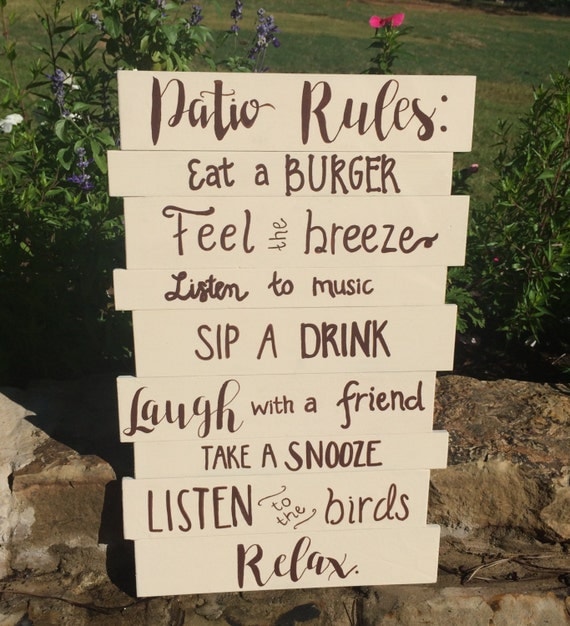 Patio Rules:
Eat a BURGER
Feel the breeze
Listen to music
SIP A DRINK
Laugh with a friend
TAKE A SNOOZE
LISTEN to the birds
Relax.